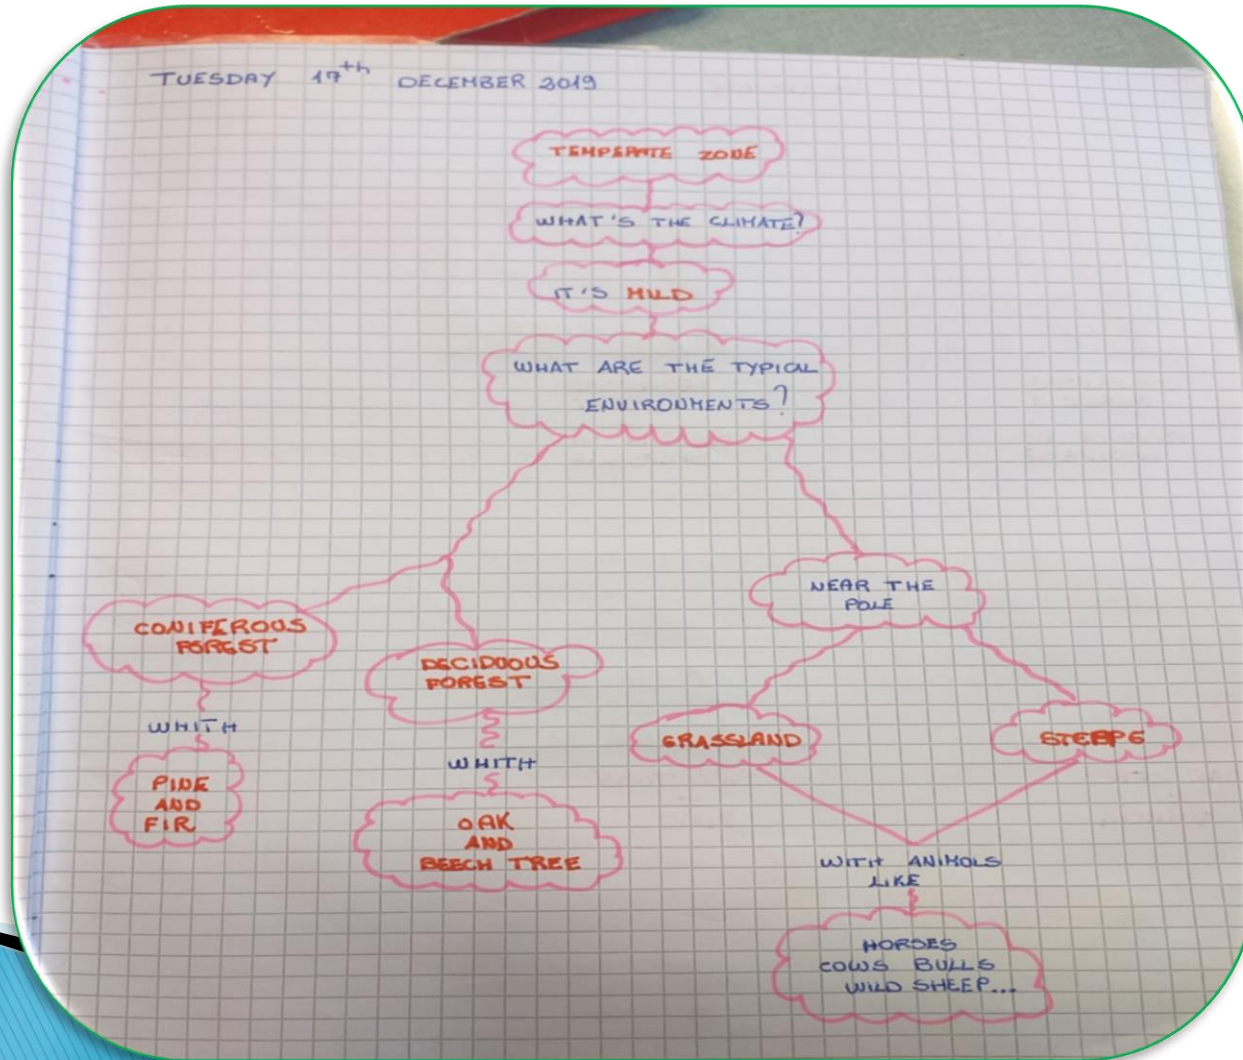 TUESDAY 17th DECEMBER 2019
TEMPERATE ZONE
WHAT'S THE CLIMATE?
IT'S MILD
WHAT ARE THE TYPICAL
ENVIRONMENTS?
CONIFEROUS
FOREST
WHITH
PINE
AND
FIR
DECIDUOUS
FOREST
WHITH
OAK
AND
BEECH TREE
NEAR THE
POLE
GRASSLAND
STEEPE
WITH ANIMOLS
LIKE
HORSES
COWS BULLS
WILD SHEEP...